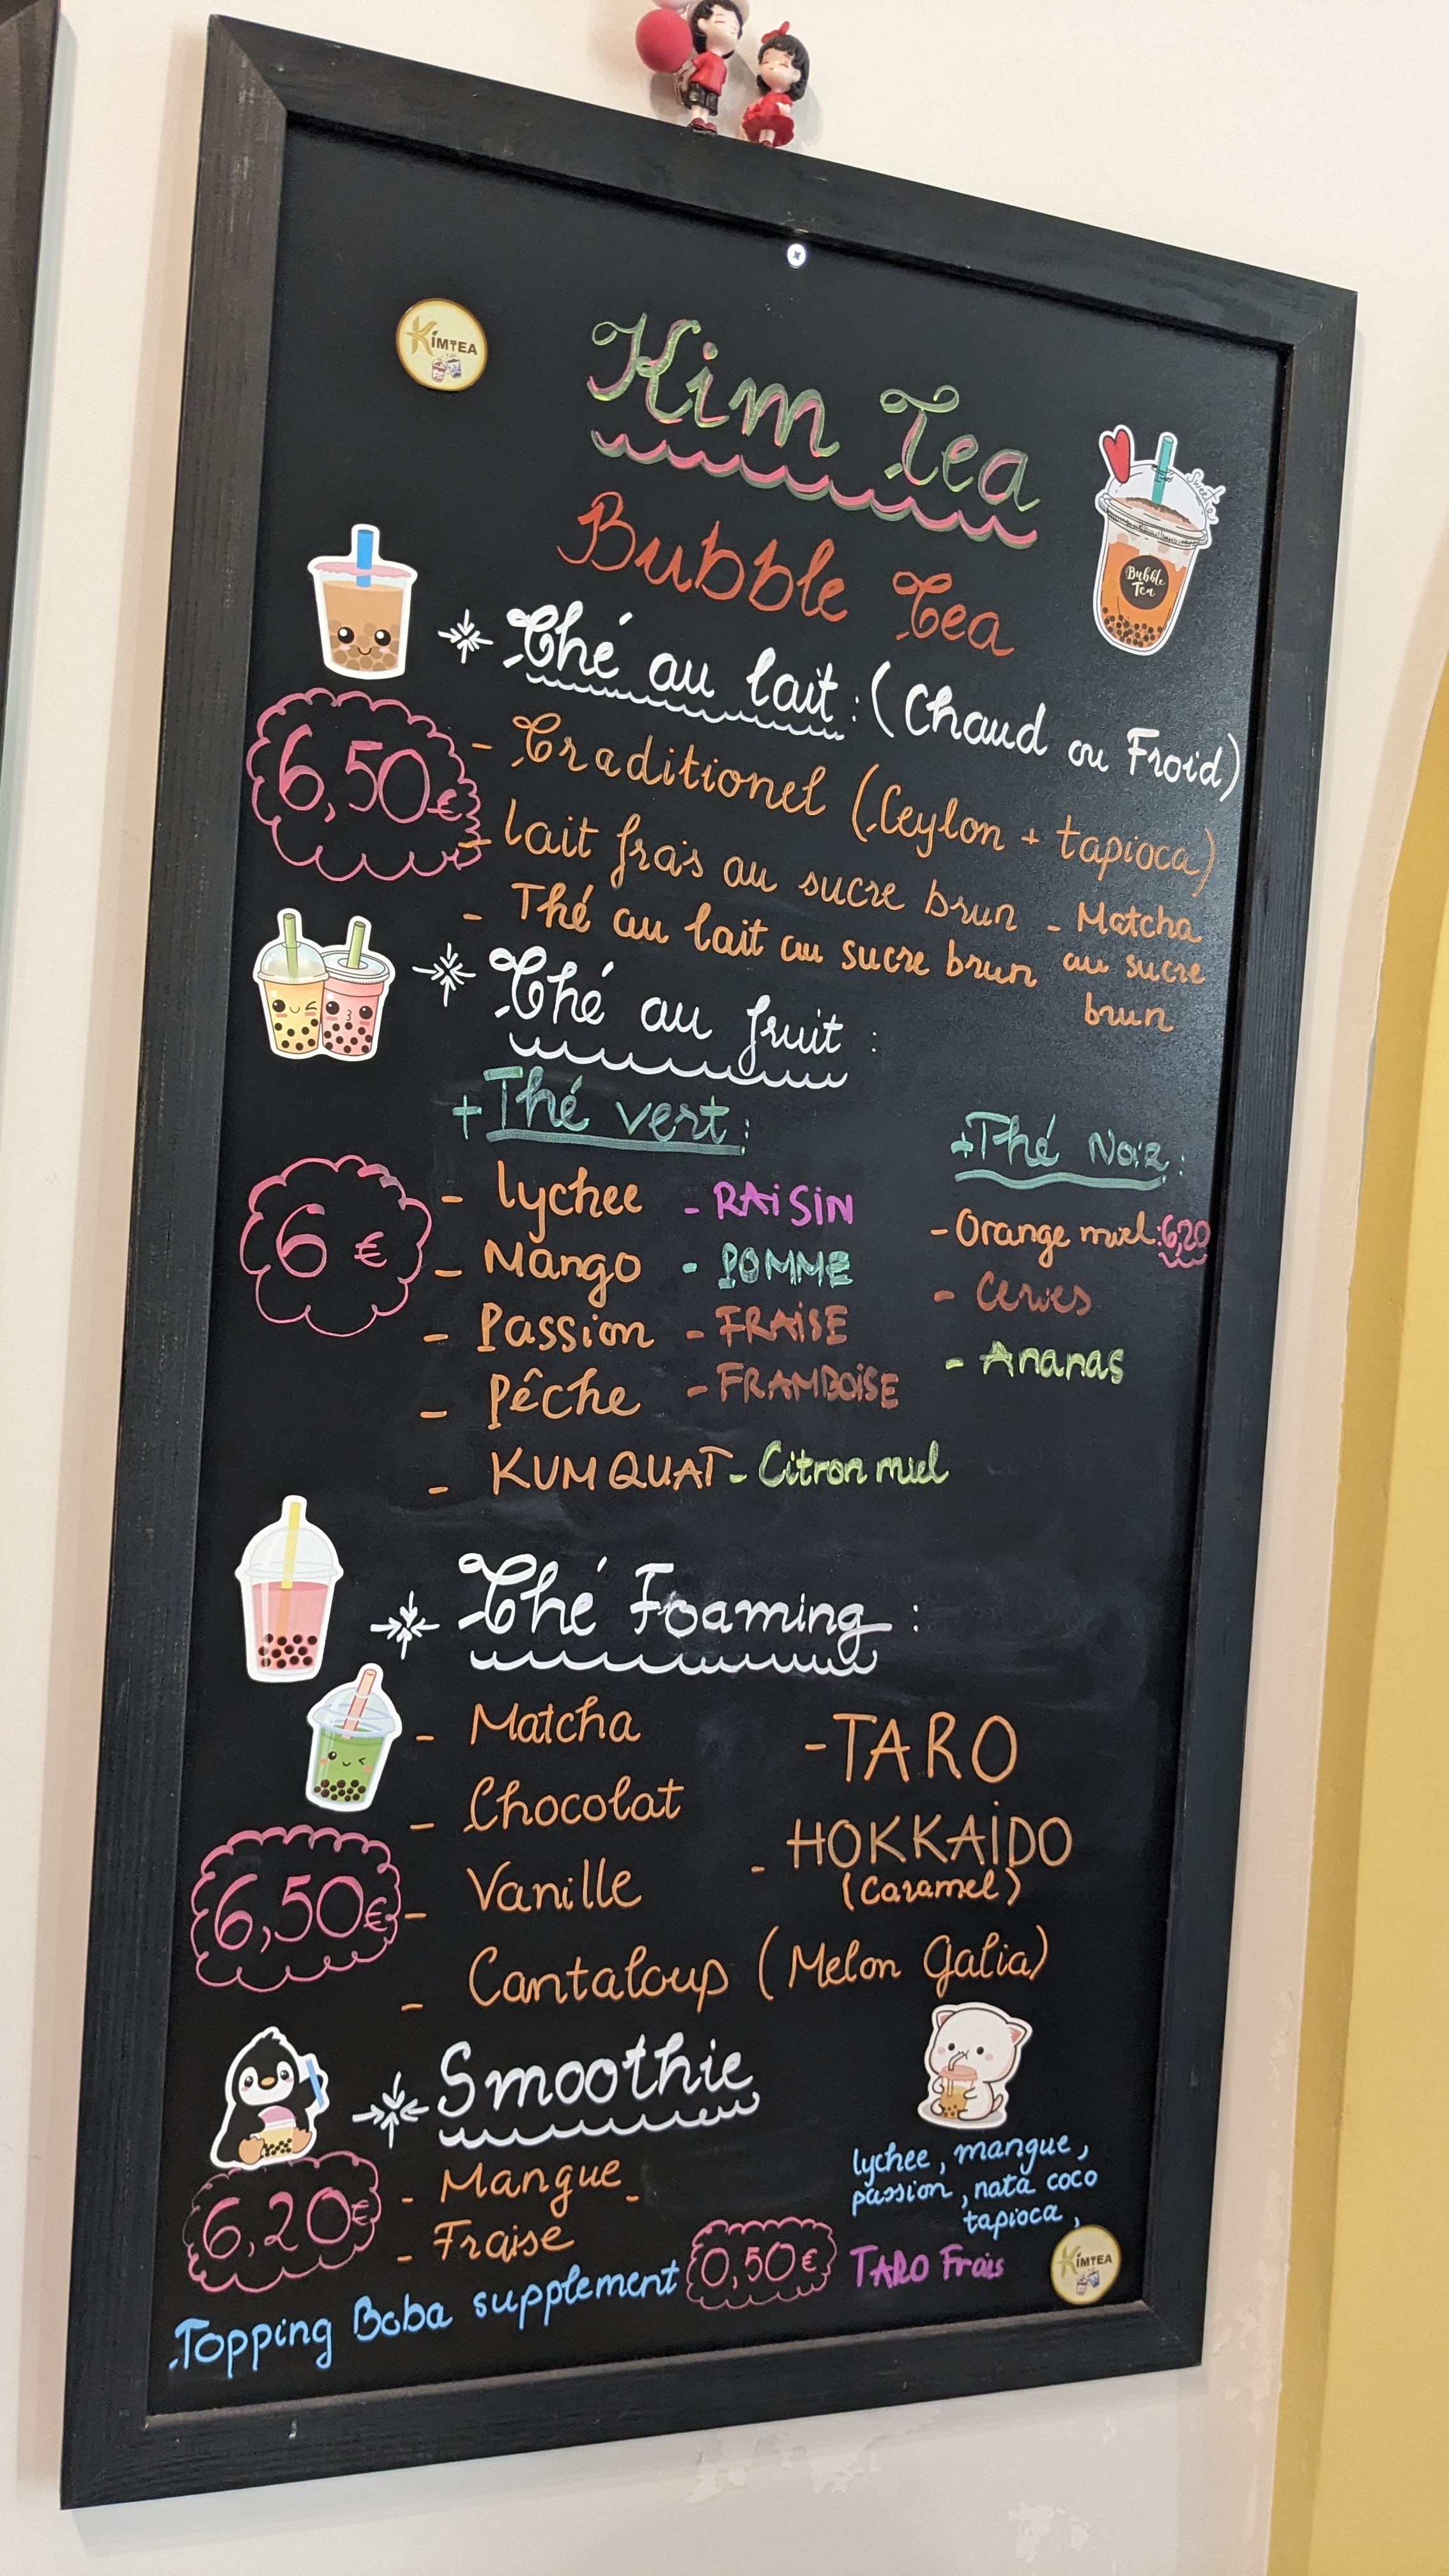 KIMTEA
Kim Tea
Bubble Tea
Sweetie
Bubble
Tea
Thé au lait : (Chaud ou Froid)
6,50€
- Traditionel (Ceylon + tapioca)
- lait frais au sucre brun
- Thé au lait au sucre brun
- Matcha
au sucre
brun
Thé au fruit :
+ Thé vert :
6 €
- lychee - RAiSiN
- Mango - POMME
- Passion - FRAiSE
- Pêche - FRAMBOiSE
- KUMQUAT - Citron miel
+ Thé Noir :
- Orange miel : 6,20
- Cerises
- Ananas
Thé Foaming :
- Matcha - TARO
- Chocolat - HOKKAiDO
(Caramel)
6,50€
- Vanille
- Cantaloup (Melon Galia)
Smoothie
6,20€
- Mangue -
- Fraise
Topping Boba supplement 0,50€
lychee, mangue,
passion, nata coco
tapioca,
TARO Frais
KIMTEA